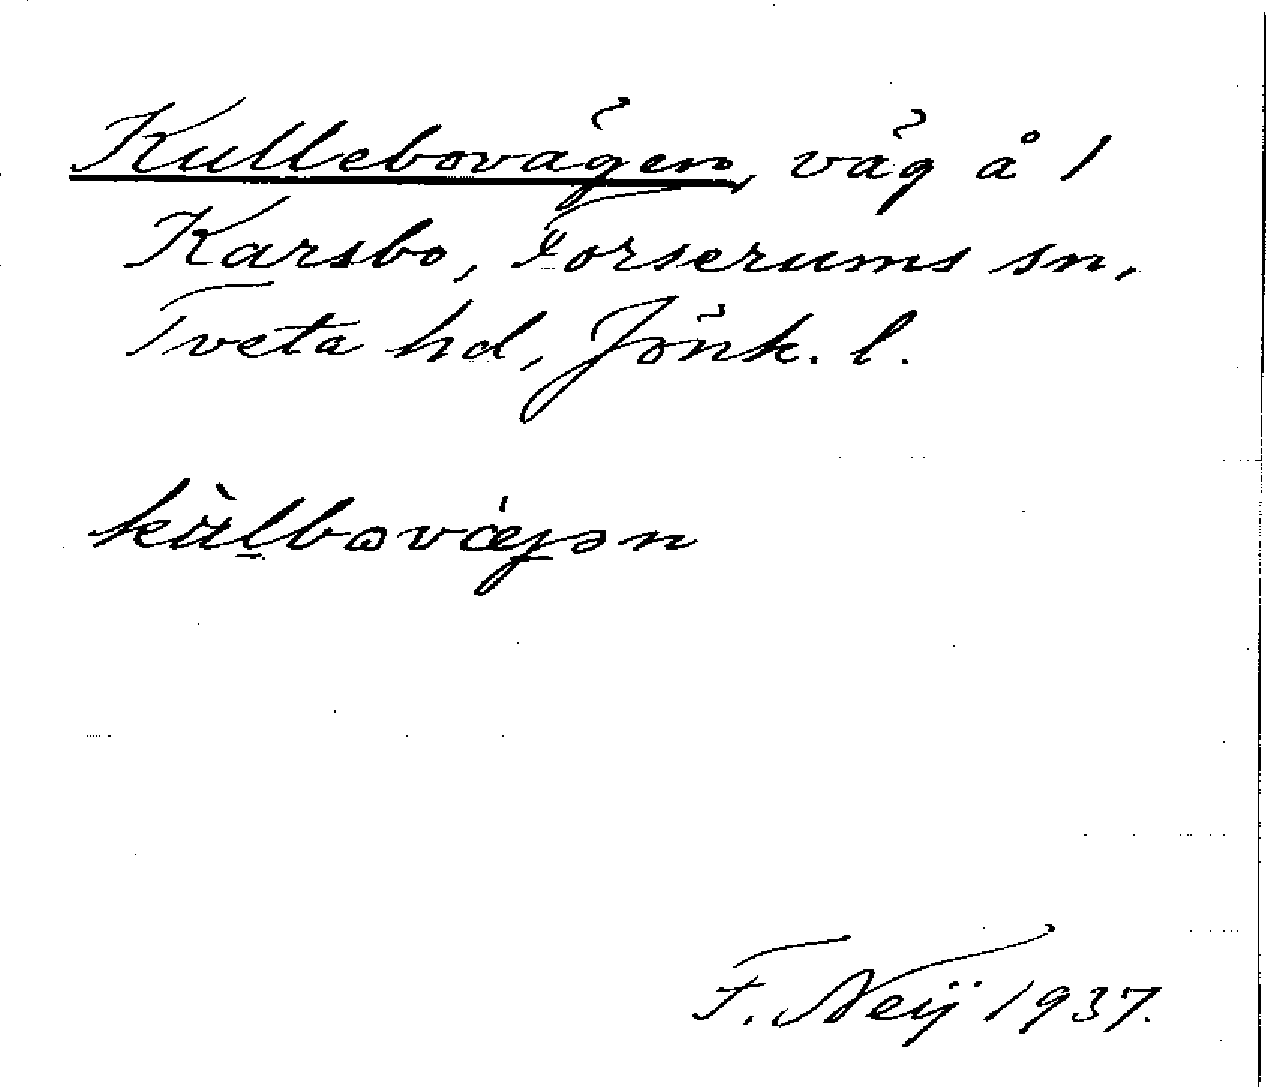 Kullebovägen, väg å 1
Karsbo, Forserums sn,
Tveta hd, Jönk. l.
F. Neÿ 1937.